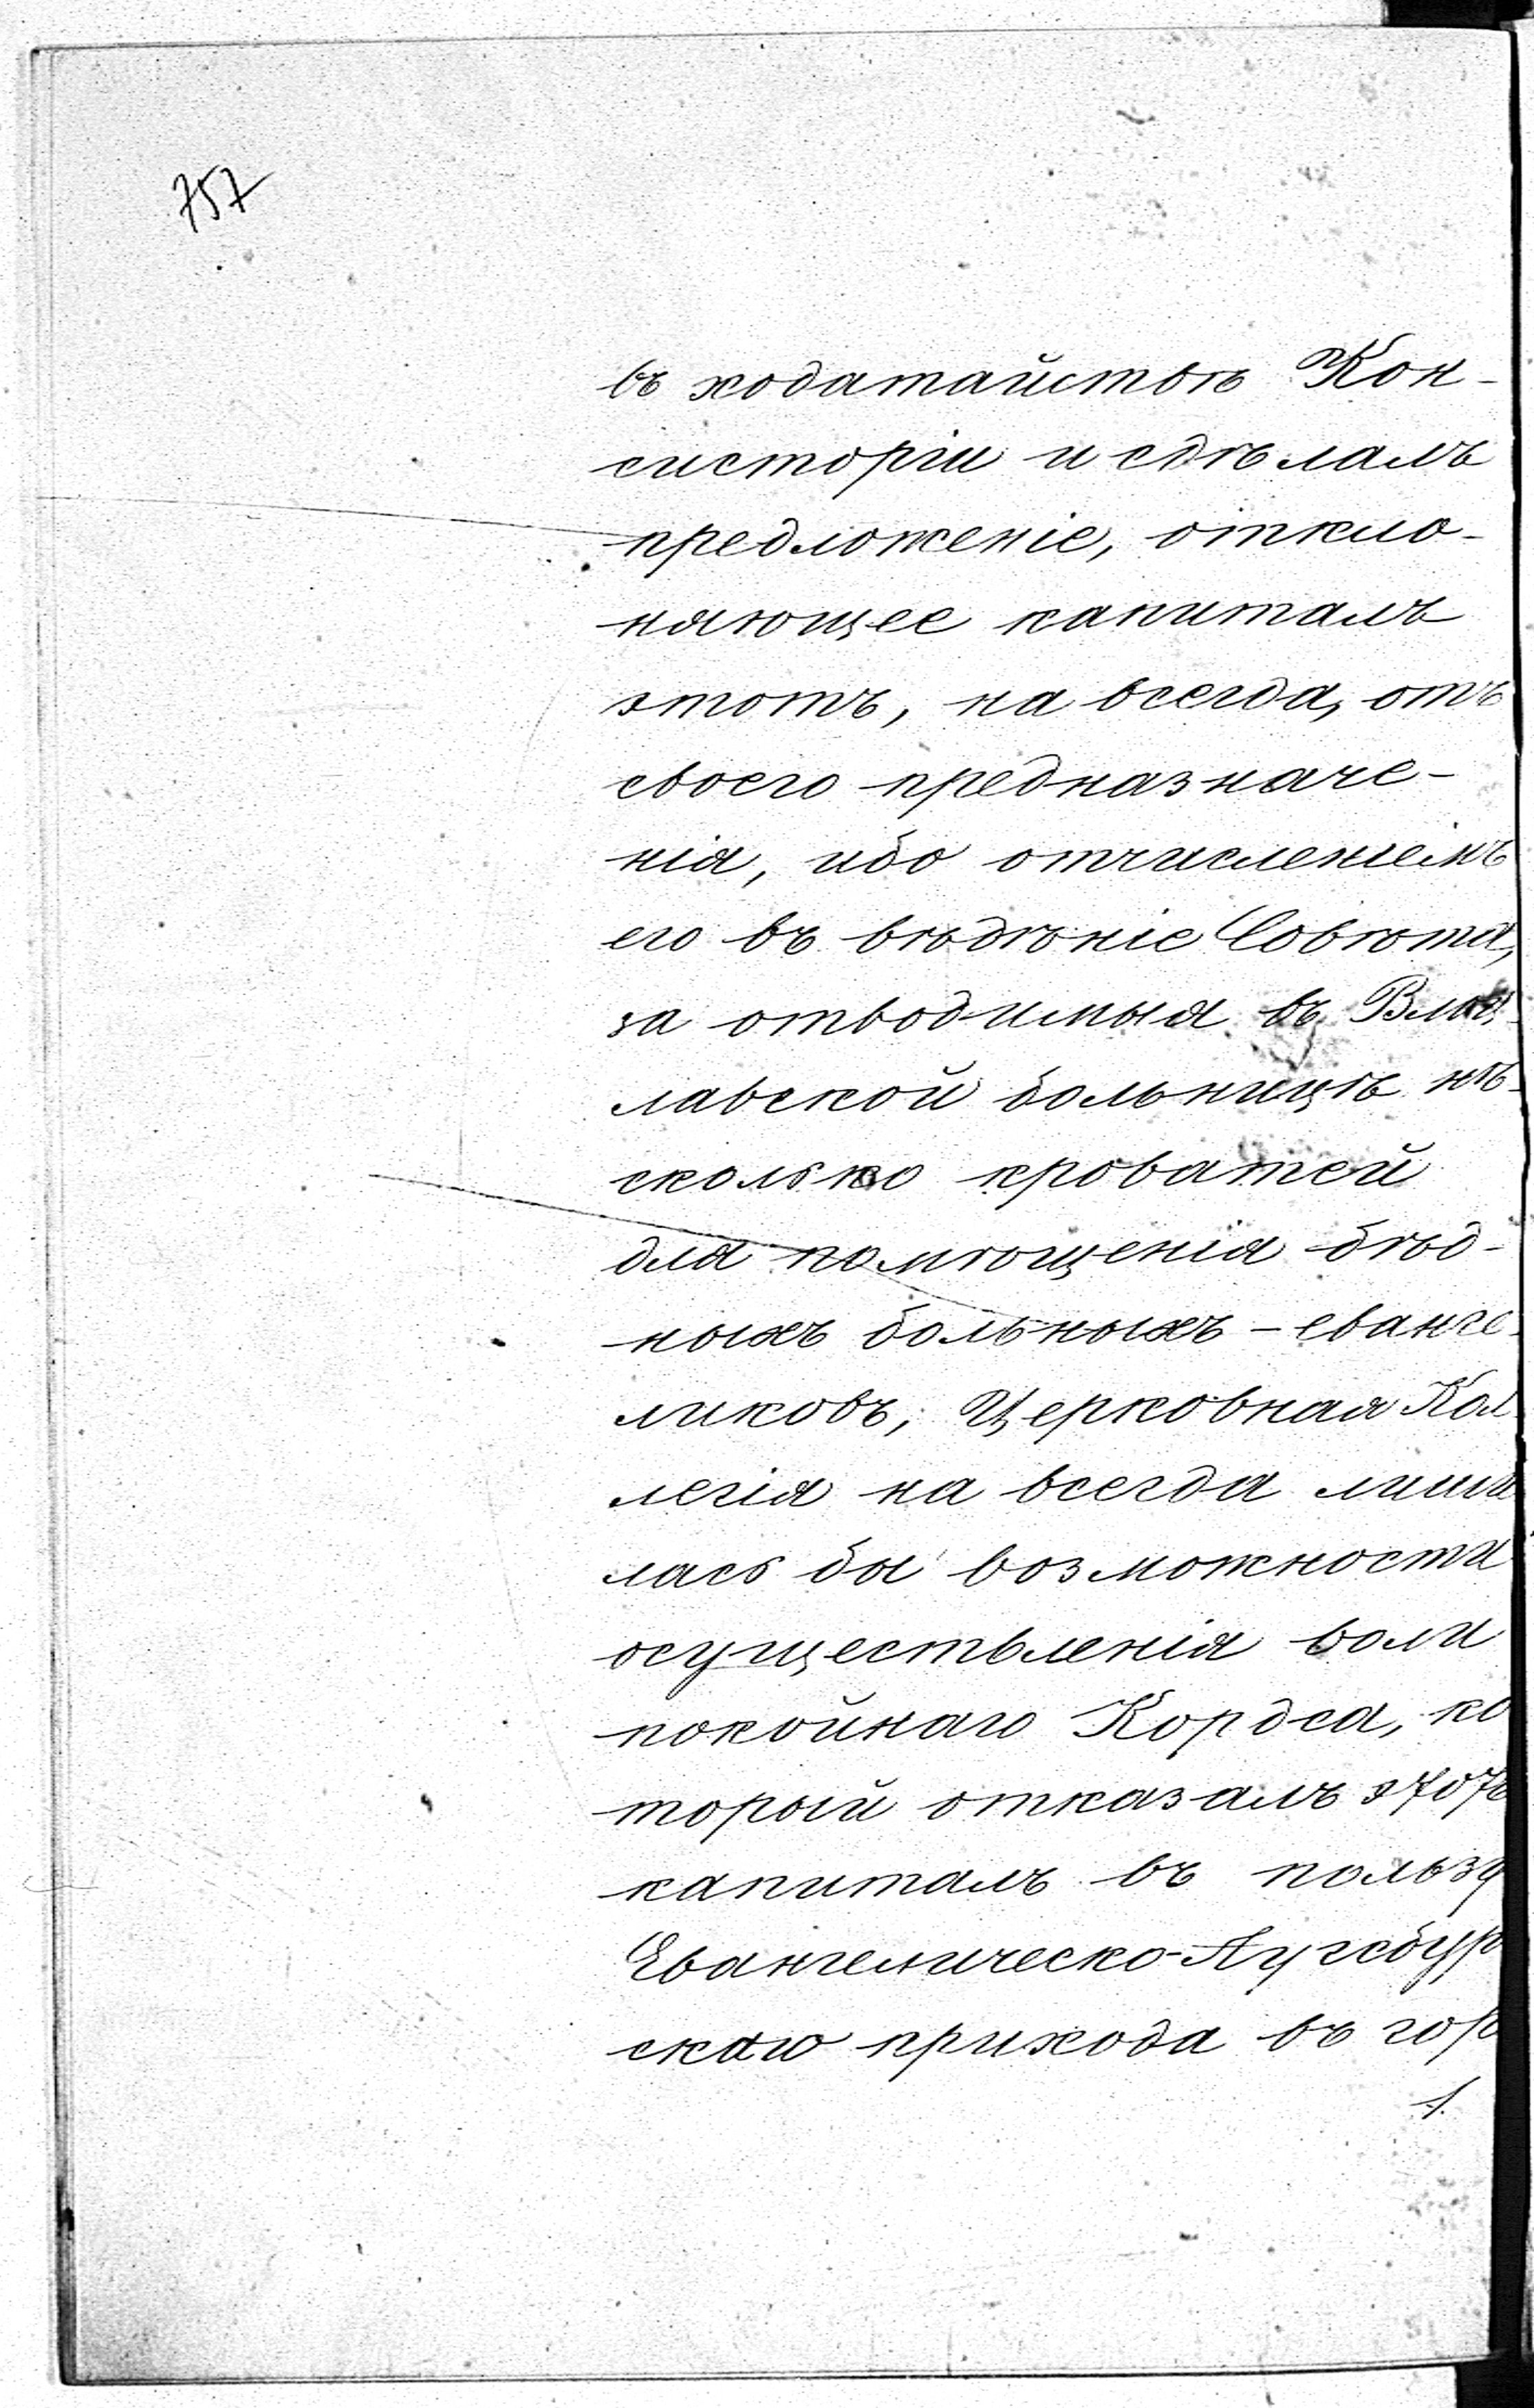 757
въ ходатайствѣ Кон-
систоріи и сдѣлалъ
предложеніе, откло-
няющее капиталъ
этотъ, на всегда, отъ
своего предназначе-
нія, ибо отчисленіемъ
его въ вѣдѣніе Совѣта,
за отводимыя въ Влоц-
лавской больницѣ нѣ-
сколько кроватей
для помѣщенія бѣд-
ныхъ больныхъ - еванге-
ликовъ, Церковная Кол
легія на всегда лиши
лась бы возможности
осуществленія воли
покойнаго Кордса, ко
торый отказалъ этотъ
капиталъ въ пользу
Евангелическо-Аугсбур
скаго прихода въ гор